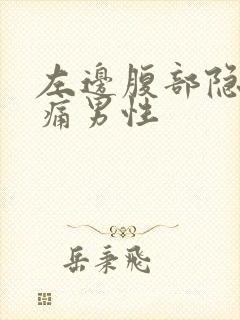 左邊腹部隐
痛男性
岳秉飛